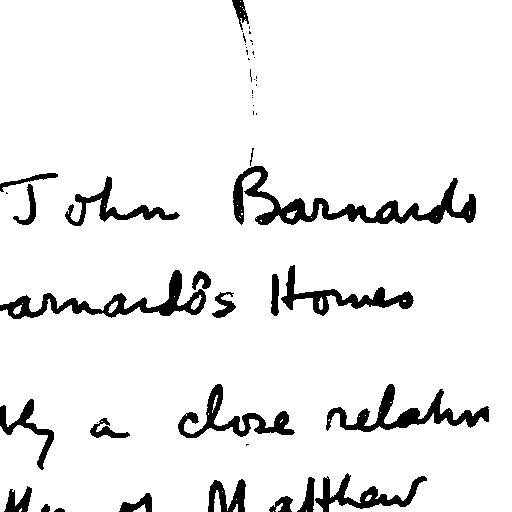 John Barnardo
arnardo's Homes
a close relatn
of Matthew